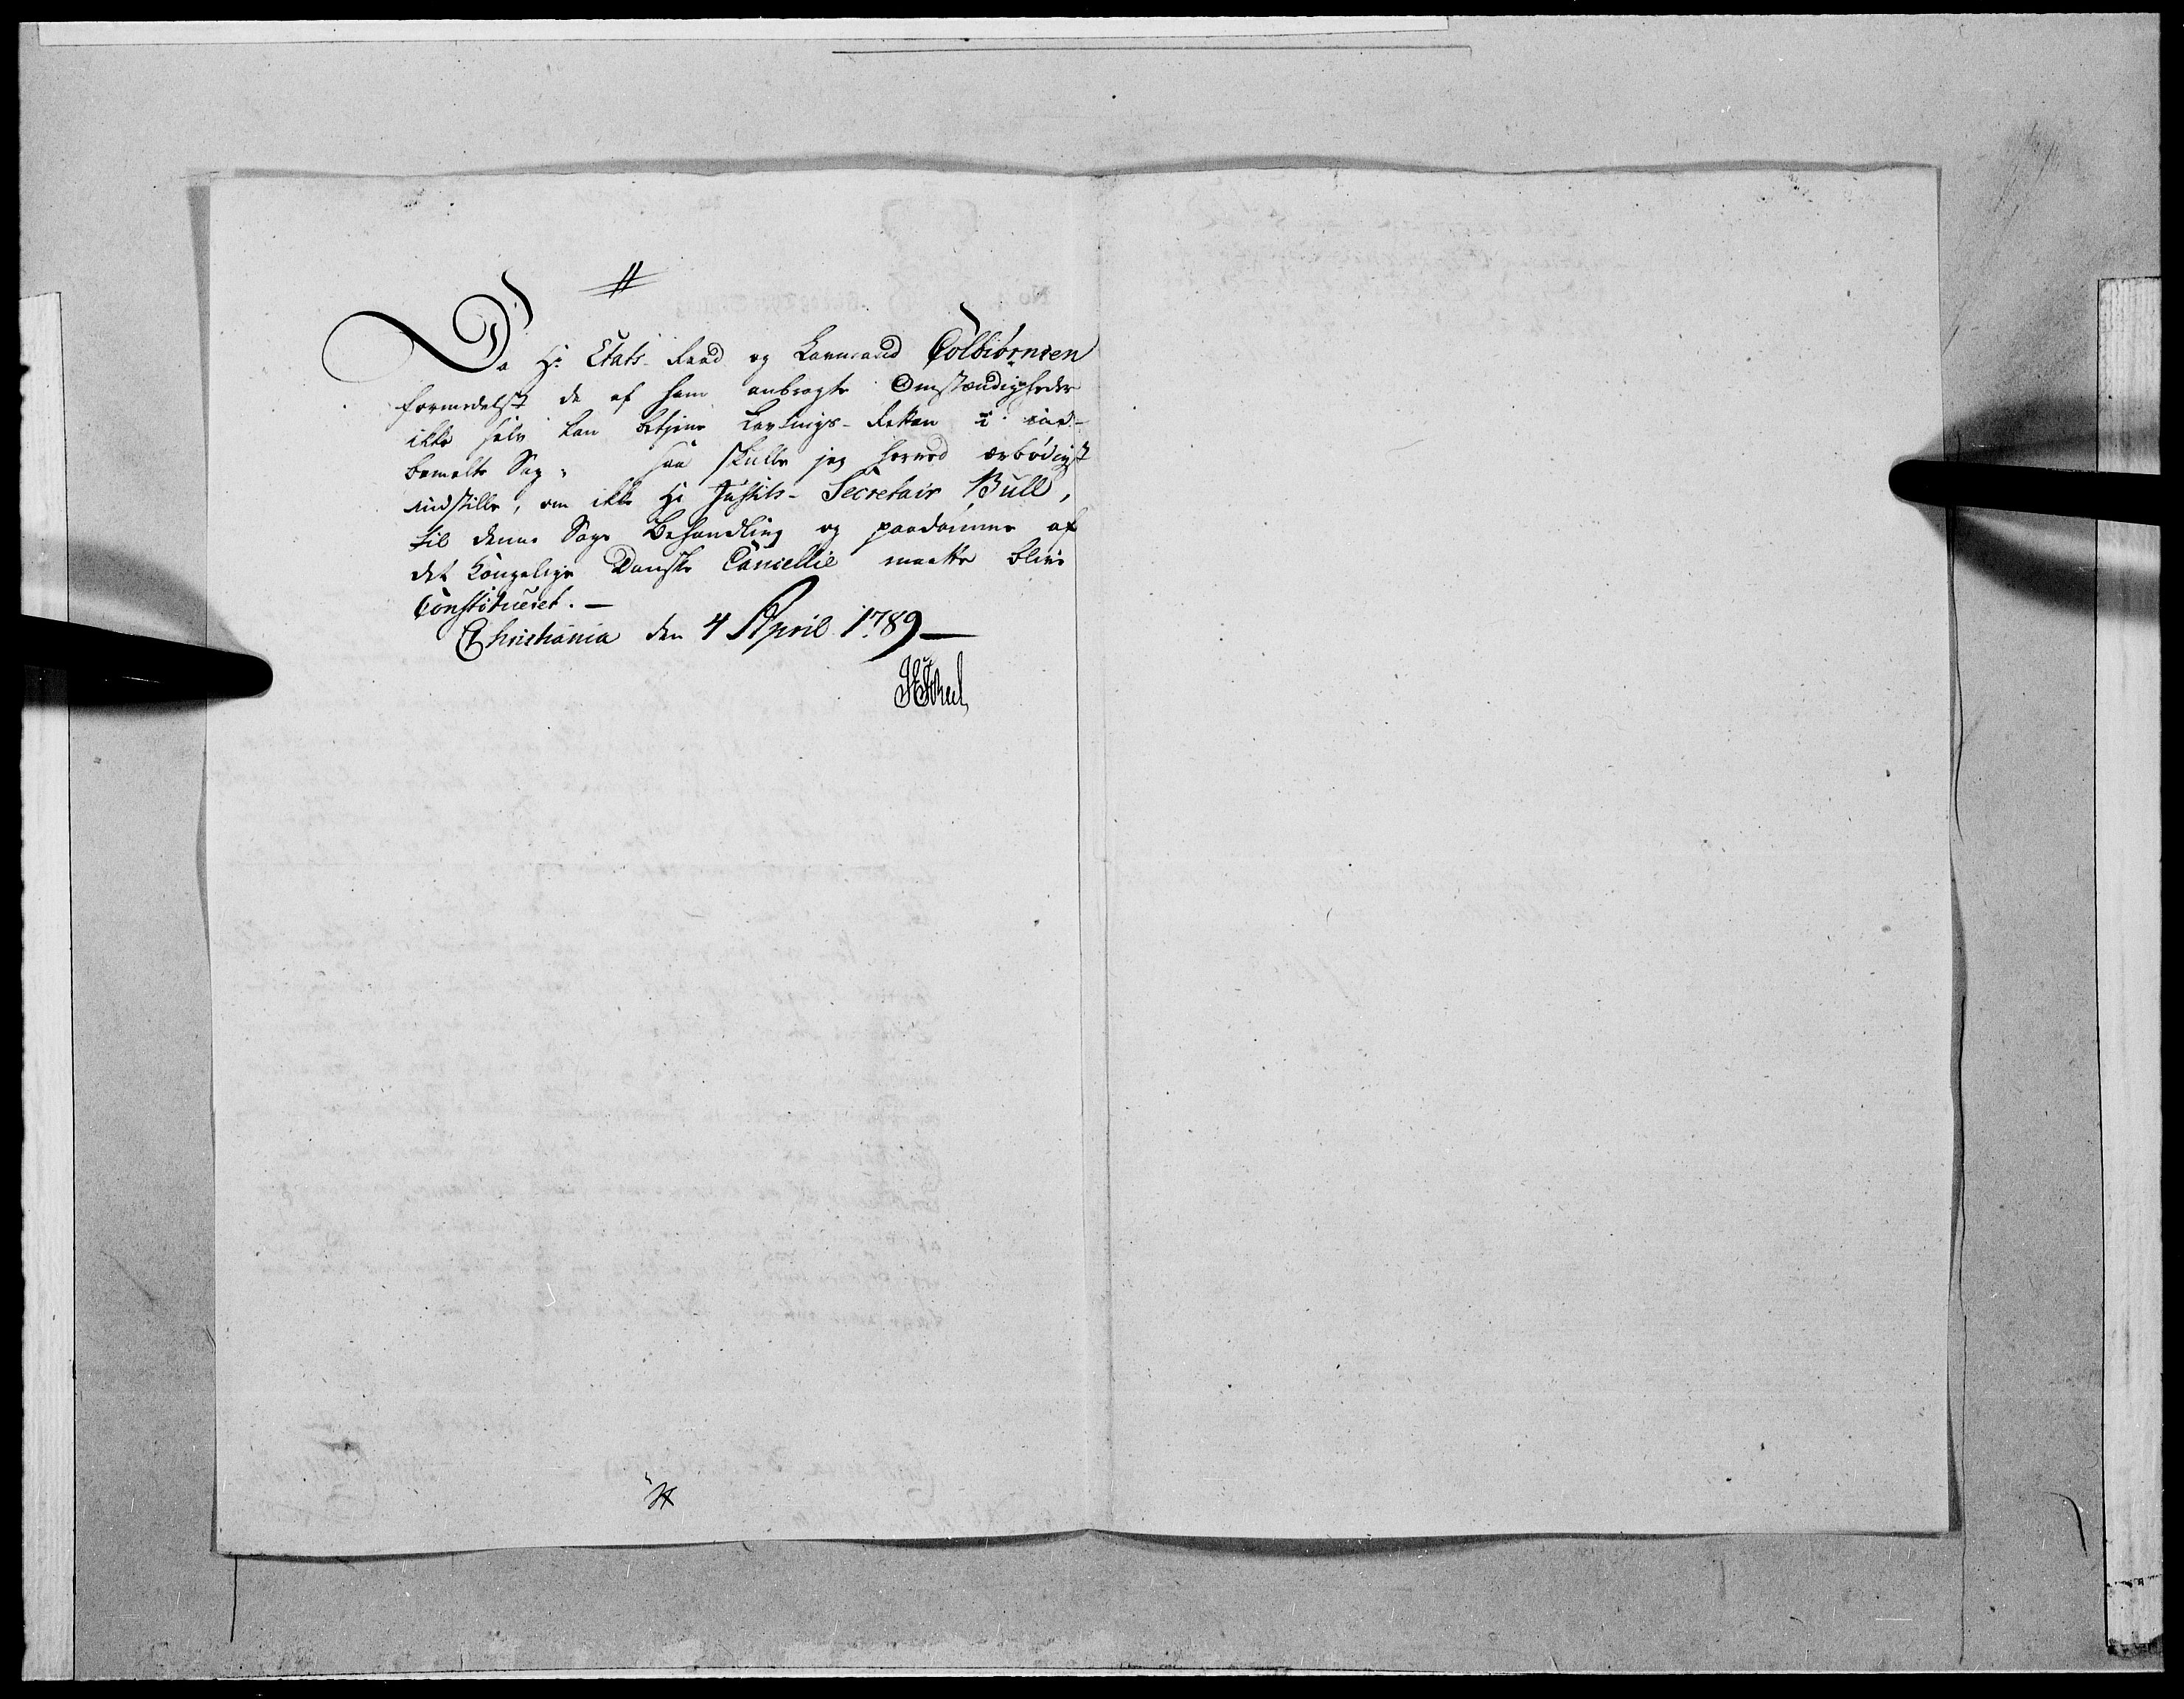 Da Hr Etats-Raad og Laumand Colbiørnsen
formedelst de af ham anbragte Omstændigheder
ikke selv kan betjene Lavtings-Retten i
bemelte Sag, saa skulle jeg herved ærbødigst
indstille, om ikke Hr Justits-Secretair Bull,
til denne Sags Behandling og paadømme af
det Kongelige Danske Cancellie maatte blive
Constitueret. —
Christiania den 4 April 1789 —